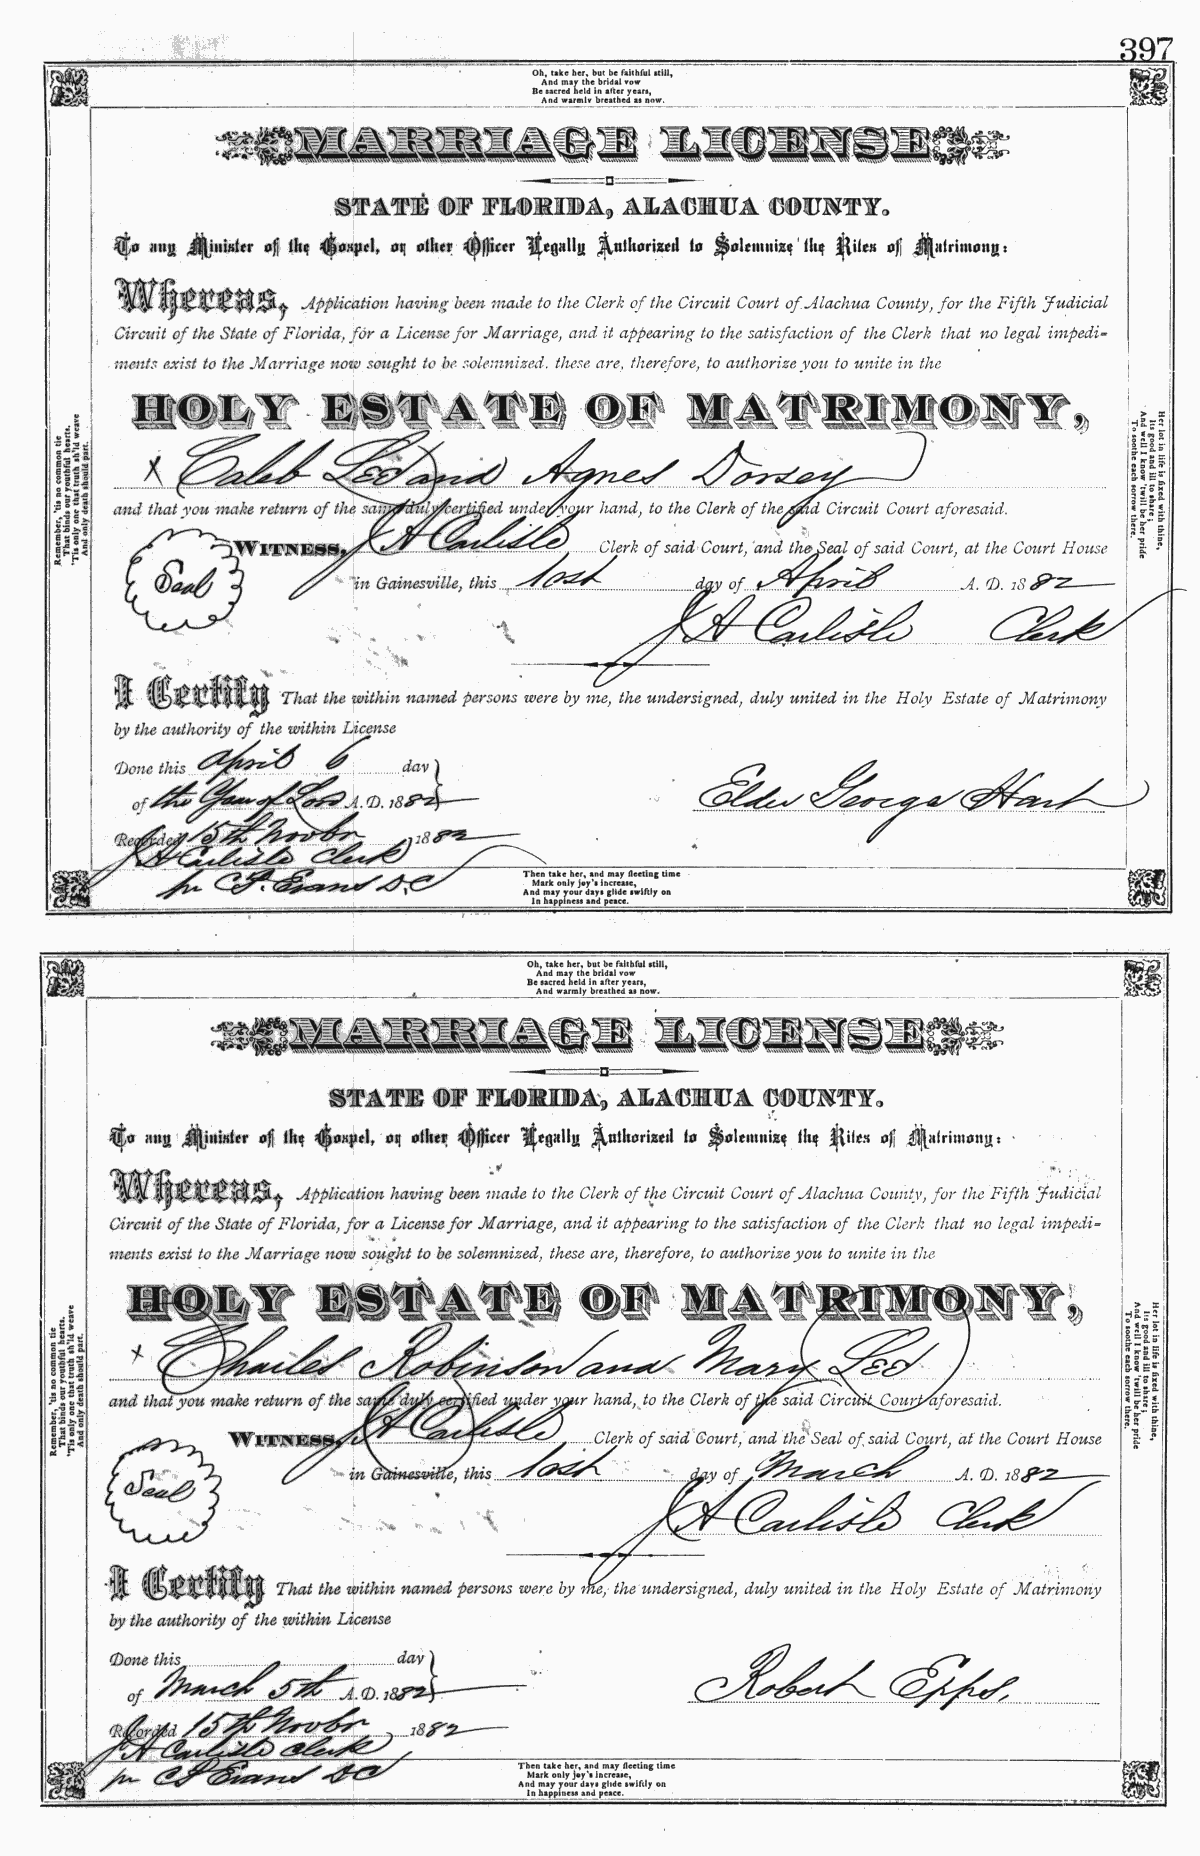 397
Oh, take her, but be faithful still,
And may the bridal vow
Be sacred held in after years,
And warmly breathed as now.
MARRIAGE LICENSE
STATE OF FLORIDA, ALACHUA COUNTY.
To any Minister of the Gospel, or other Officer Legally Authorized to Solemnize the Rites of Matrimony:
Whereas, Application having been made to the Clerk of the Circuit Court of Alachua County, for the Fifth Judicial
Circuit of the State of Florida, for a License for Marriage, and it appearing to the satisfaction of the Clerk that no legal impedi-
ments exist to the Marriage now sought to be solemnized, these are, therefore, to authorize you to unite in the
HOLY ESTATE OF MATRIMONY,
x Caleb Lee and Agnes Dorsey
and that you make return of the same duly certified under your hand, to the Clerk of the said Circuit Court aforesaid.
Seal
WITNESS, J A Carlisle Clerk of said Court, and the Seal of said Court, at the Court House
in Gainesville, this 1ost day of April A. D. 1882
J A Carlisle Clerk
I Certify That the within named persons were by me, the undersigned, duly united in the Holy Estate of Matrimony
by the authority of the within License
Done this april 6 day
of the Year of Lord A. D. 1882
Elder George Hart
Recorded 15th Novbr 1882
J A Carlisle Clerk
pr C. S. Evans D.C
Remember, 'tis no common tie
That binds our youthful hearts,
'Tis only one that truth sh'ld weave
And only death should part.
Her lot in life is fixed with thine,
Its good and ill to share;
And well I know 'twill be her pride
To soothe each sorrow there.
Then take her, and may fleeting time
Mark only joy's increase,
And may your days glide swiftly on
In happiness and peace.
Oh, take her, but be faithful still,
And may the bridal vow
Be sacred held in after years,
And warmly breathed as now.
MARRIAGE LICENSE
STATE OF FLORIDA, ALACHUA COUNTY.
To any Minister of the Gospel, or other Officer Legally Authorized to Solemnize the Rites of Matrimony:
Whereas, Application having been made to the Clerk of the Circuit Court of Alachua County, for the Fifth Judicial
Circuit of the State of Florida, for a License for Marriage, and it appearing to the satisfaction of the Clerk that no legal impedi-
ments exist to the Marriage now sought to be solemnized, these are, therefore, to authorize you to unite in the
HOLY ESTATE OF MATRIMONY,
x Charles Robinson and Mary Lee
and that you make return of the same duly certified under your hand, to the Clerk of the said Circuit Court aforesaid.
Seal
WITNESS, J A Carlisle Clerk of said Court, and the Seal of said Court, at the Court House
in Gainesville, this 1ost day of March A. D. 1882
J A Carlisle Clerk
I Certify That the within named persons were by me, the undersigned, duly united in the Holy Estate of Matrimony
by the authority of the within License
Done this day
of March 5th A. D. 1882
Robert Epps.
Recorded 15th Novbr 1882
J A Carlisle Clerk
pr C S Evans DC
Remember, 'tis no common tie
That binds our youthful hearts,
'Tis only one that truth sh'ld weave
And only death should part.
Her lot in life is fixed with thine,
Its good and ill to share;
And well I know 'twill be her pride
To soothe each sorrow there.
Then take her, and may fleeting time
Mark only joy's increase,
And may your days glide swiftly on
In happiness and peace.